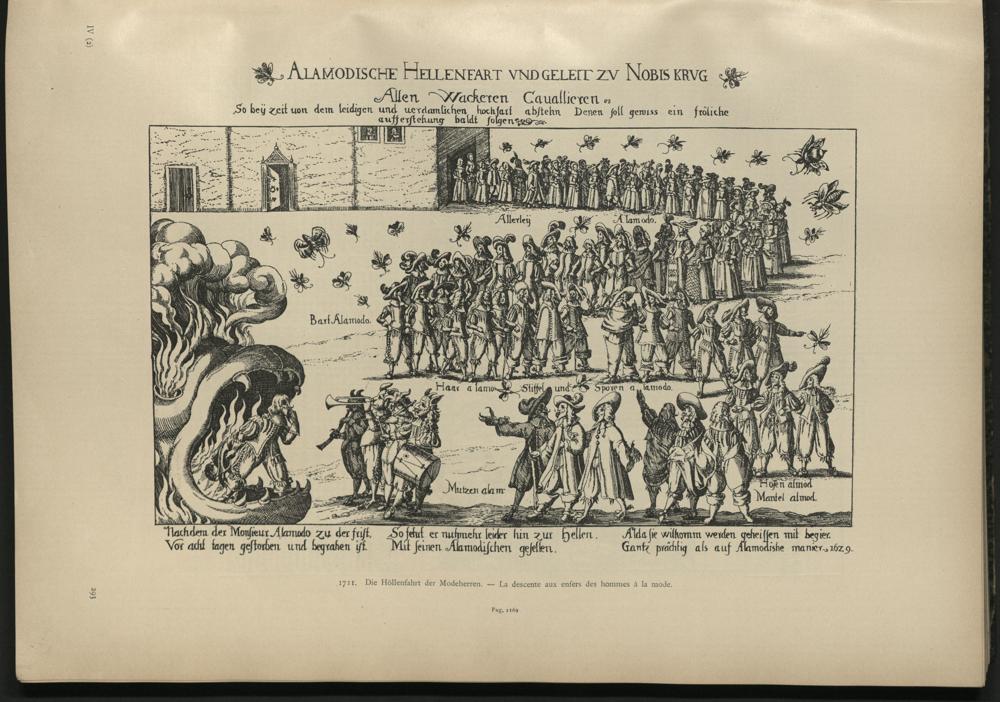 IV (2)
ALAMODISCHE HELLENFART VND GELEIT ZV NOBIS KRVG
Allen Wackeren Cauallieren
So beÿ zeit von dem leidigen und verdamlichen hochfart abstehn Denen soll gewiss ein fröliche
aufferstehung baldt folgen
Allerleÿ Alamodo.
Bart Alamodo.
Haar a lamo Stiffel und Sporen a lamodo.
Mutzen alam:
Hosen almod
Mantel almod.
Nachdem der Monsieur Alamodo zu der frist,
Vor acht tagen gestorben und begraben ist.
So fehrt er nuhmehr leider hin zur Hellen.
Mit seinen Alamodischen gesellen.
Alda sie wilkomm werden geheissen mit begier.
Gantz prächtig als auf Alamodishe manier. 1629.
1721. Die Höllenfahrt der Modeherren. — La descente aux enfers des hommes à la mode.
Pag. 1169
293